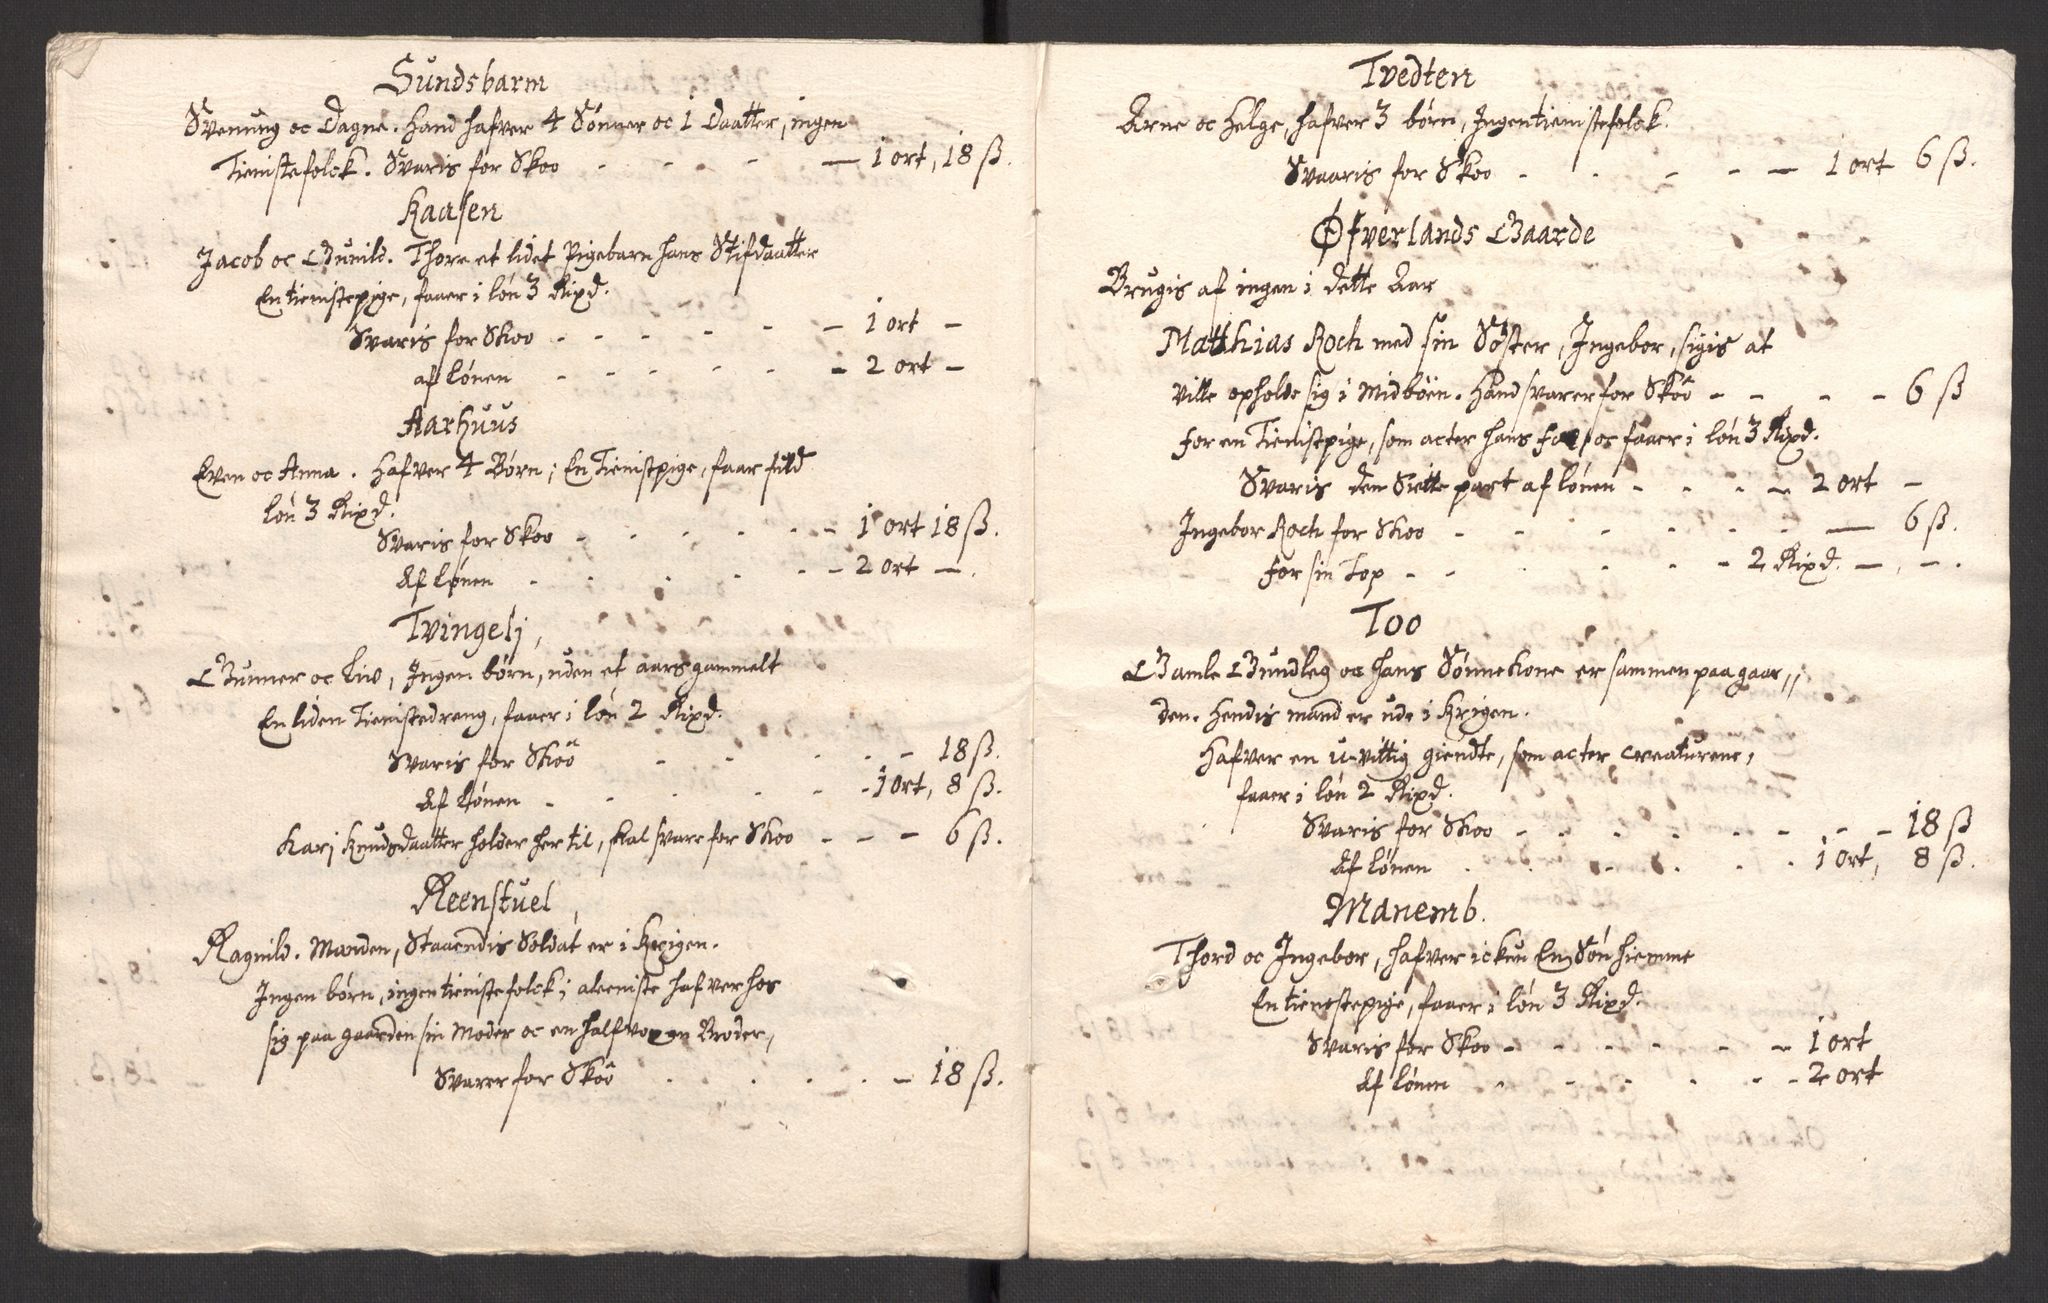 Sundsbarm
Svenung oc Dagne. Hand hafver 4 Sønner oc 1 Daatter, ingen
Tienistefolck. Svaris for Skoo - - - - 1 ort, 18 ß.
Kaasen
Jacob oc Gunild. Thore et lidet Pigebarn hans Stifdaatter
En tienistepige, faaer i løn 3 Rixd.
Svaris for Skoo - - - - - - 1 ort -
af lønen - - - - - - 2 ort -
Aarhuus
Even oc Anna. Hafver 4 Børn; En Tienistpige, faar fuld
løn 3 Rixd.
Svaris for Skoo - - - - - - 1 ort 18 ß.
Af lønen - - - - - - 2 ort -.
Tvingelj,
Gunner oc Liv, Ingen børn, uden et aars gammelt
En liden Tienistedreng, faaer i løn 2 Rixd.
Svaris for Skoo - - - - - 18 ß.
Af Lønen - - - - - - 1 ort, 8 ß.
Karj Knudsdaatter holder her til, skal svare for Skoo - - - 6 ß.
Reenstuel,
Ragnild. Manden, Staaendis Soldat er i Krigen.
Ingen børn, ingen tienistefolck; aleeniste hafver hos
sig paa gaarden sin Moder oc en halfvoxen Broder,
Svarer for Skoo - - - - - 18 ß.
Tvedten
Arne oc Helge, hafver 3 børn, Ingen tienistefolck.
Svaaris for Skoo - - - - - 1 ort 6 ß.
Øfverlands Gaarde
Brugis af ingen i dette Aar
Matthias Koch med sin Søster, Ingebor, sigis at
ville opholde sig i Midbøen. Hand svarer for Skoo - - - - 6 ß
For en Tienistpige, som acter hans oc faaer i løn 3 Rixd.
Svaris den Siette part af lønen - - - - 2 ort -
Ingebor Koch for Skoo - - - - - - - 6 ß.
For sin Top - - - - - - 2 Rixd. -, -.
Too
Gamle Gundleg oc hans Sønnekone er sammen paa gaar,,
den. Hendis mand er ude i Krigen.
Hafver en u-vittig giendte, som acter Creaturene,
faaer i løn 2 Rixd.
Svaris for Skoo - - - - - - - - 18 ß
Af lønen - - - - - - 1 Ort, 8 ß.
Manemb.
Thord oc Ingebor, hafver ickun En Søn hiemme
En tienestepige, faaer i løn 3 Rixd.
Svaris for Skoo - - - - - - 1 ort
Af lønen - - - - - - 2 ort